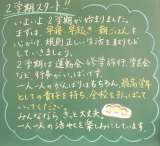 2学期スタート!!
いよいよ2学期が始まりました。
まずは、早寝 早起き 朝ごはんを
心がけ、規則正しい生活を
していきましょう。
2学期は運動会、修学旅行、学芸会
など、行事がいっぱいです。
一人一人のがんばりはもちろん、最高学年
としての責任を持ち、学校を引っぱって
いってください。
みんななら きっと大丈夫
一人一人の活やくを楽しみにしています。